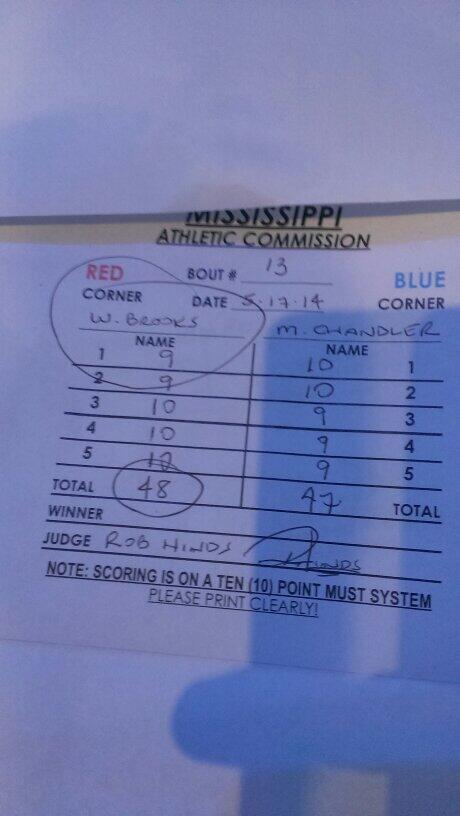 MISSISSIPPI
ATHLETIC COMMISSION
RED CORNER BOUT # 13 BLUE CORNER
DATE 5.17.14
W. BROOKS M. CHANDLER
NAME NAME
1 9 10 1
2 9 10 2
3 10 9 3
4 10 9 4
5 10 9 5
TOTAL 48 47 TOTAL
WINNER
JUDGE ROB HINDS HINDS
NOTE: SCORING IS ON A TEN (10) POINT MUST SYSTEM
PLEASE PRINT CLEARLY!